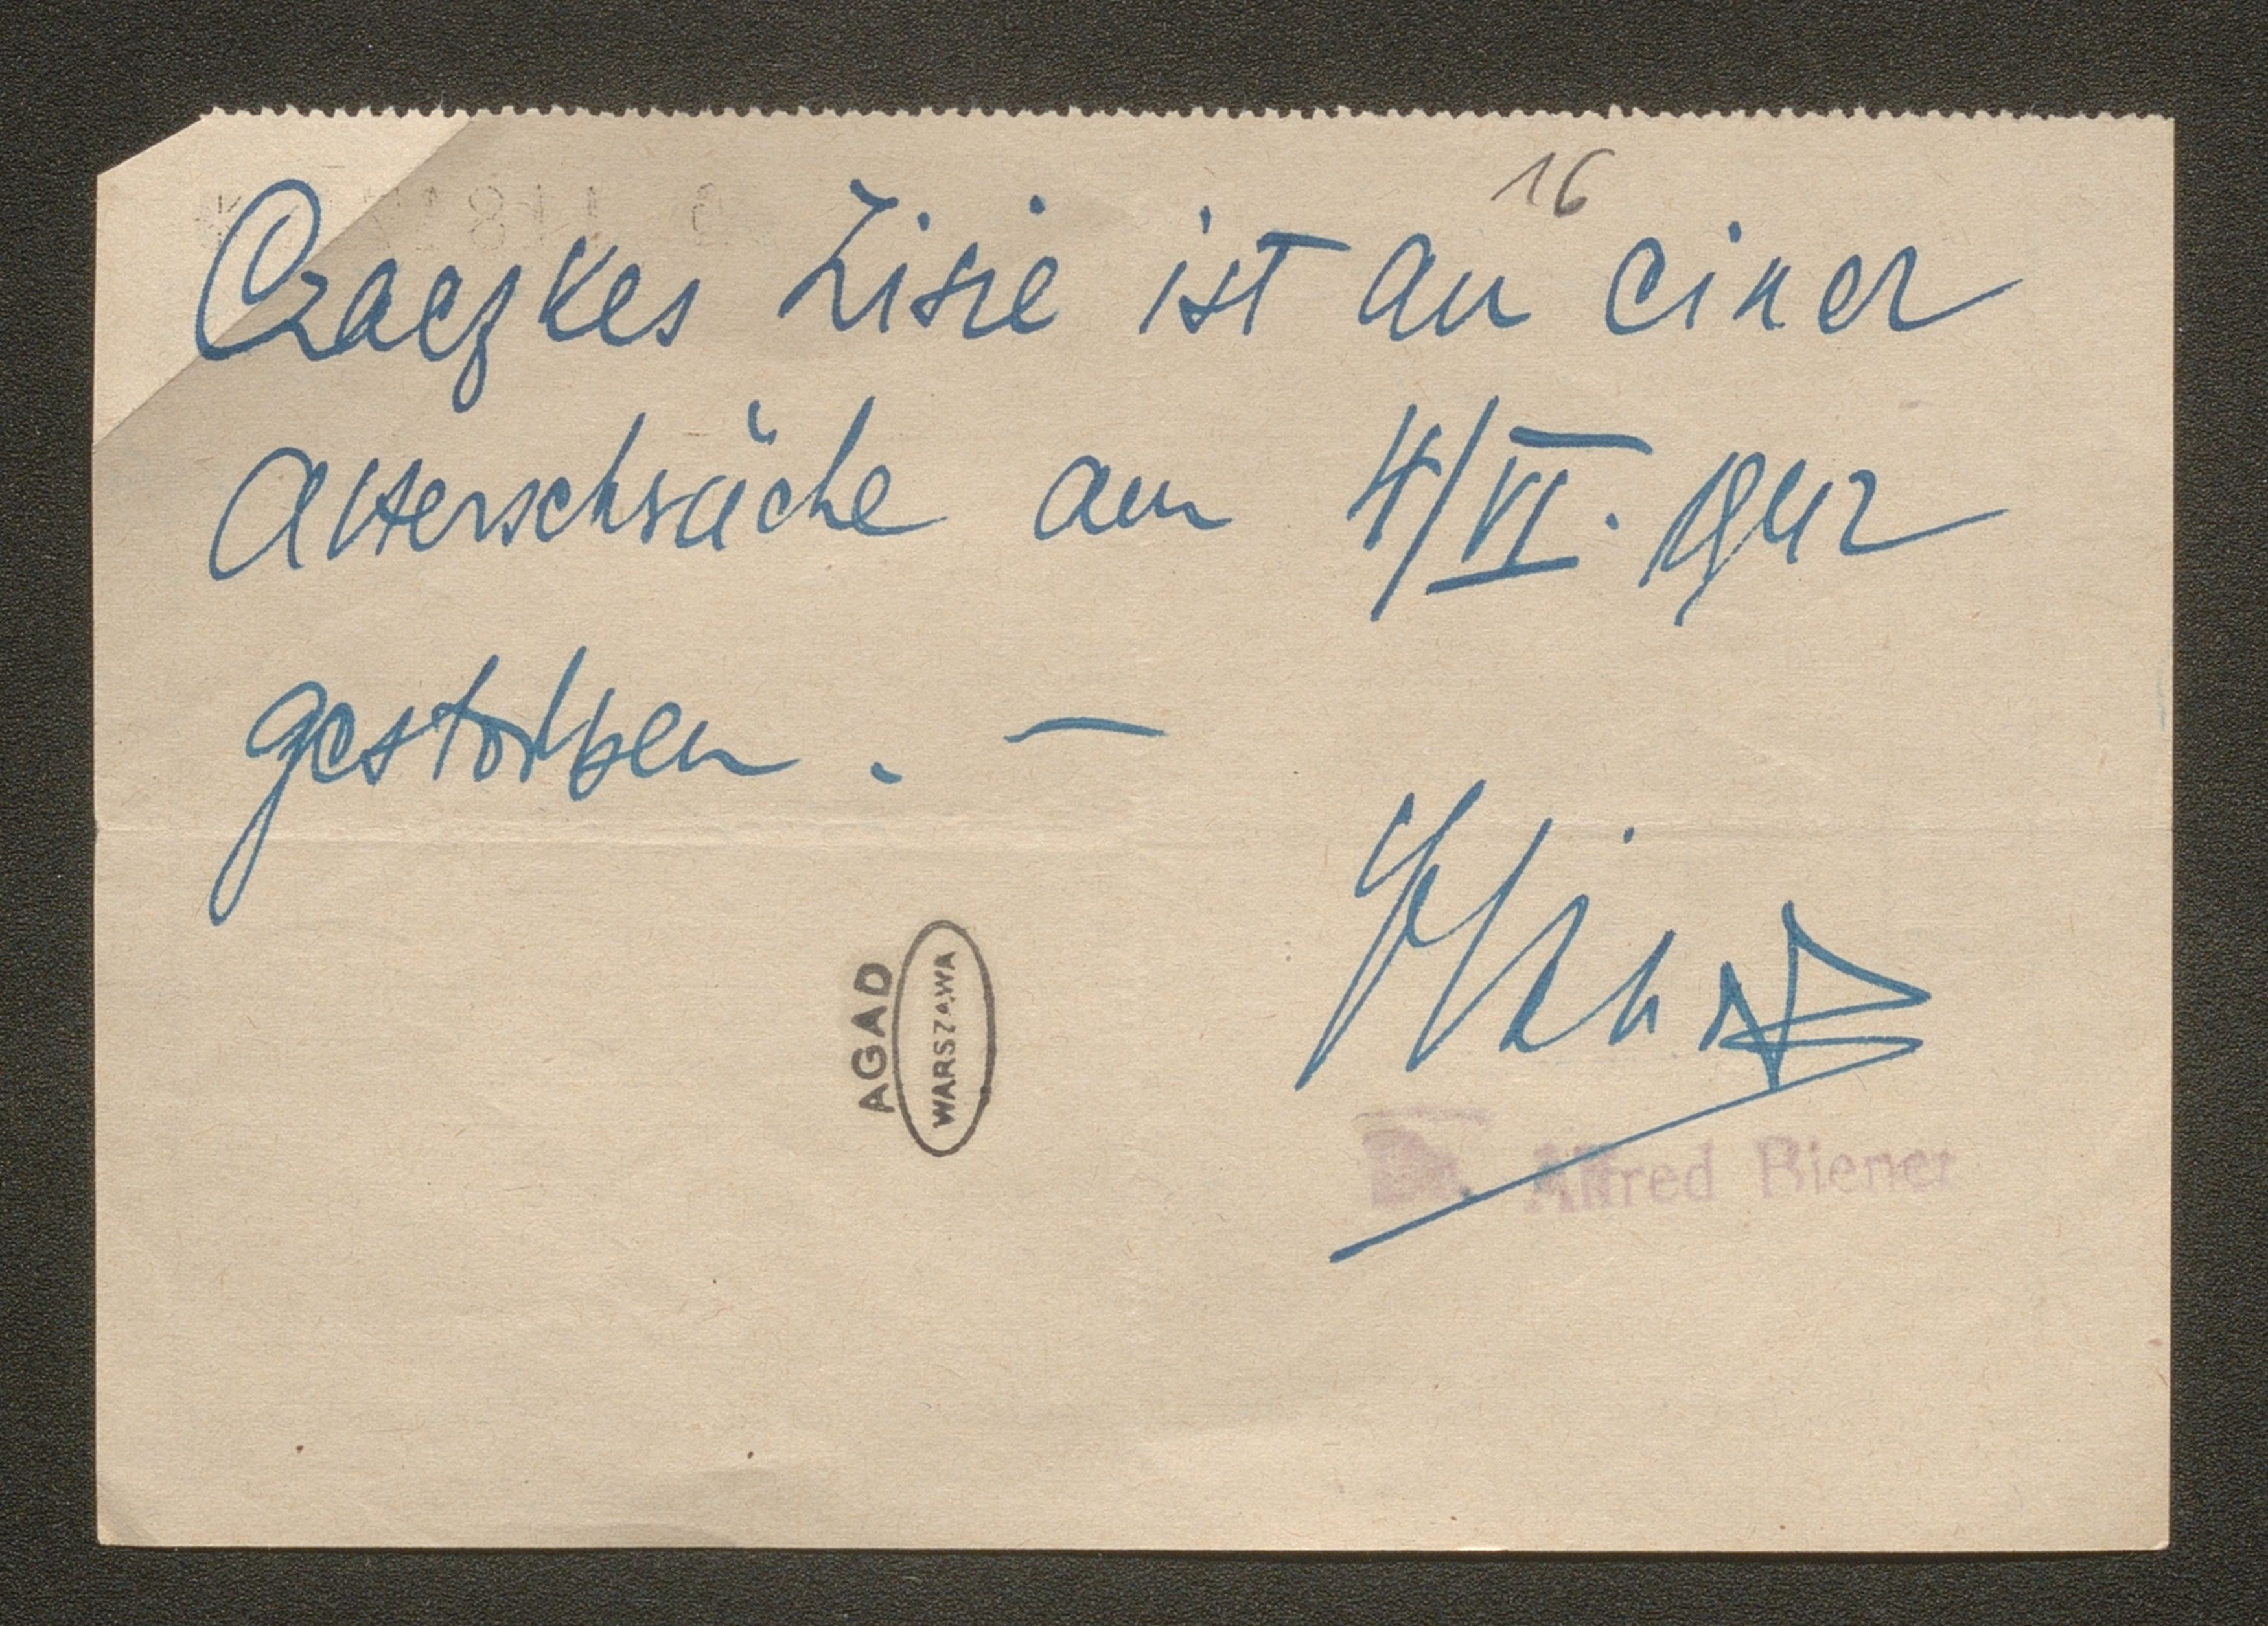 16
Czaczkes Zisie ist an einer
Alterschräche am 4/VI. 1942
gestorben. —
AGAD
WARSZAWA
Dr. Alfred Biener